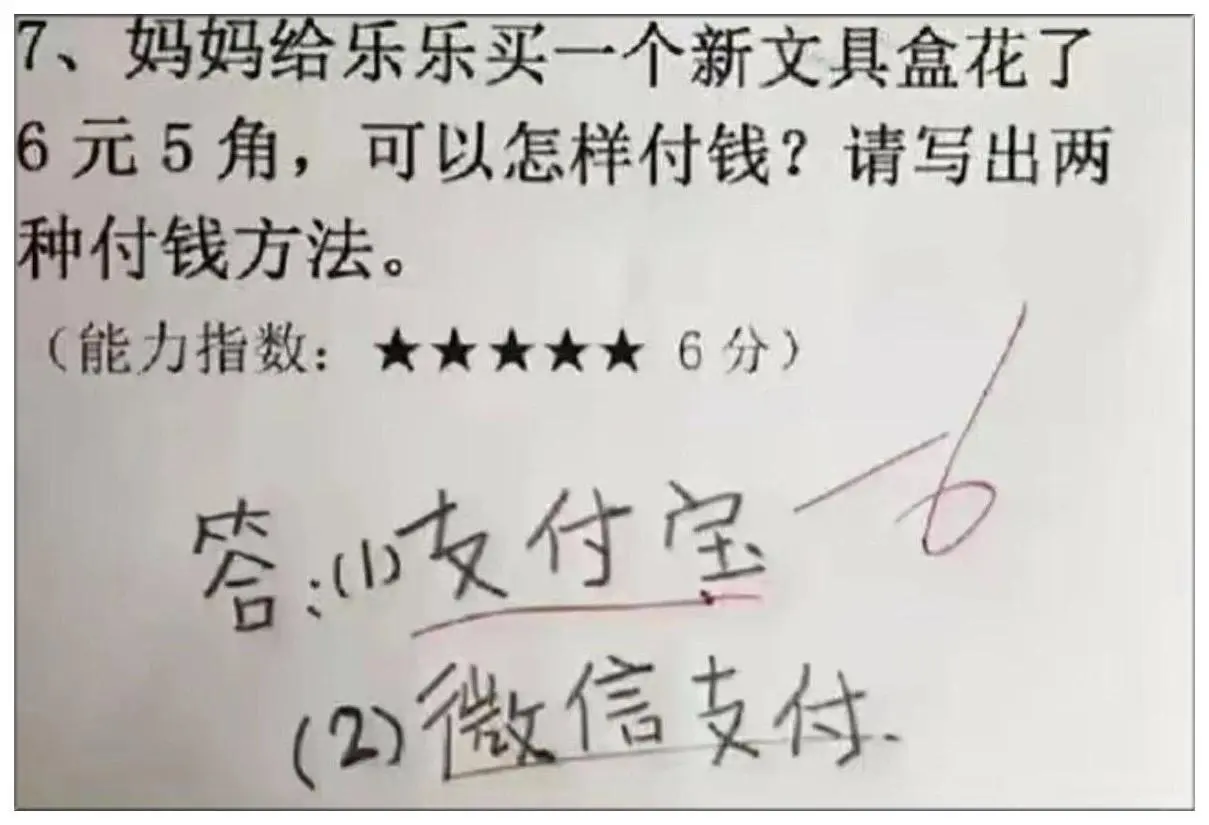 7、妈妈给乐乐买一个新文具盒花了
6元5角，可以怎样付钱？请写出两
种付钱方法。
（能力指数：★★★★★ 6分）
-6
答:(1)支付宝
(2)微信支付.